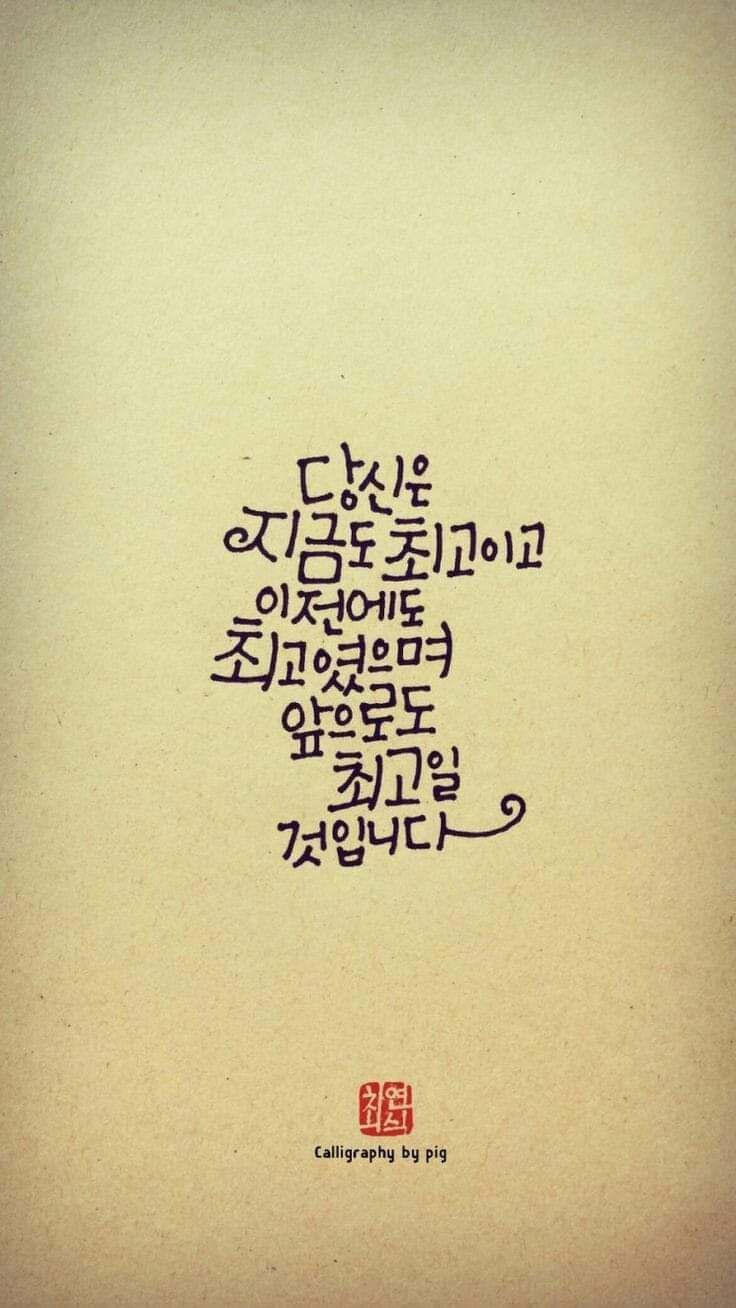 당신은
지금도 최고이고
이전에도
최고였으며
앞으로도
최고일
것입니다
최연식
Calligraphy by pig